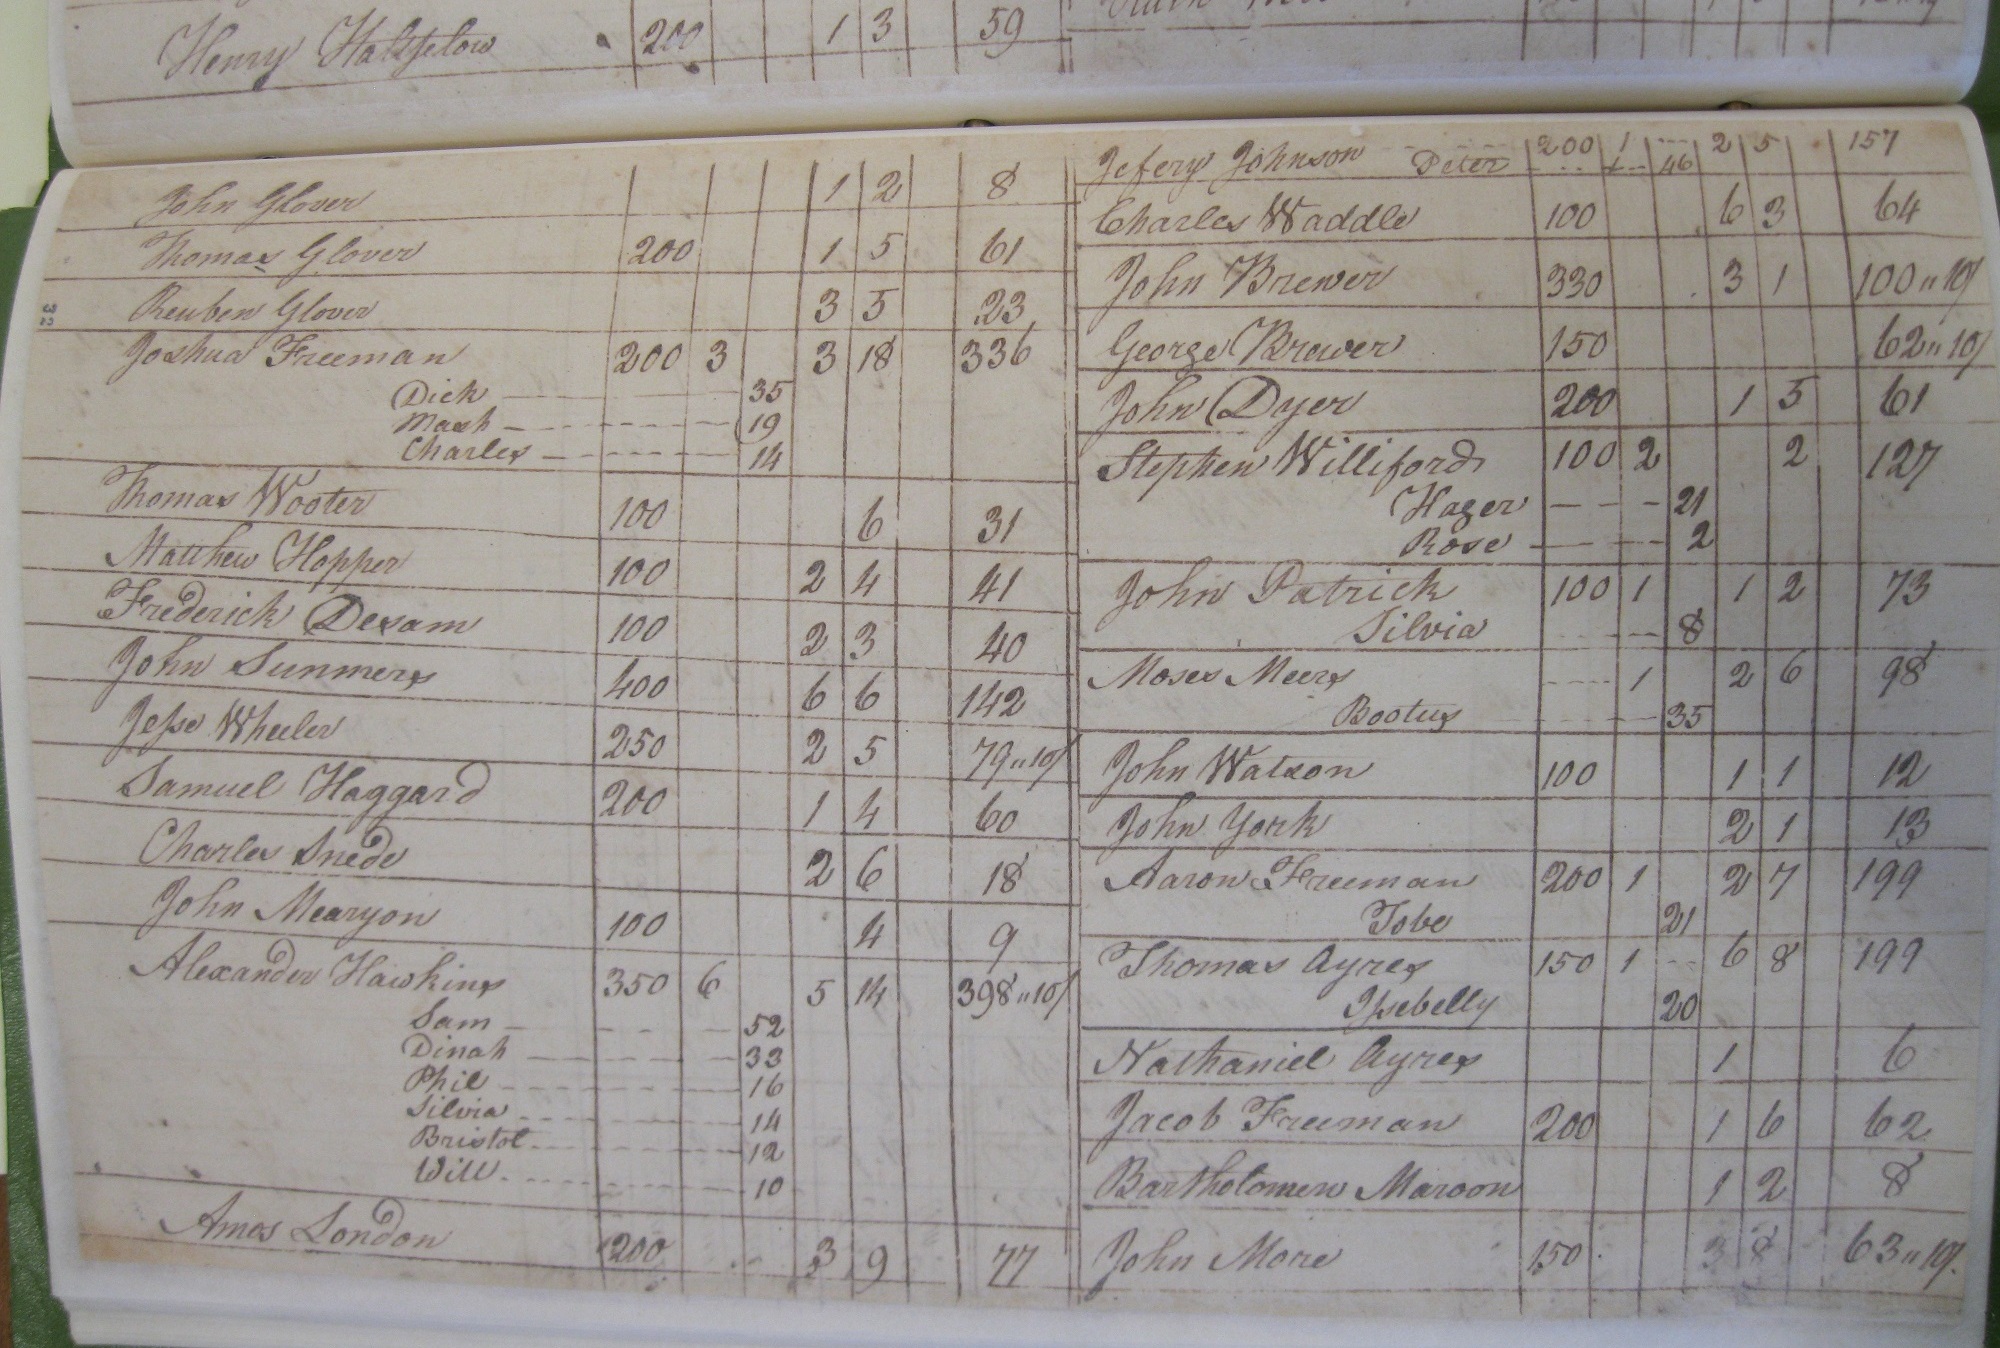 Henry Halsfelow 200 1 3 59
John Glover 1 2 8
Thomas Glover 200 1 5 61
32
Reuben Glover 3 5 23
Joshua Freeman 200 3 3 18 336
Dick 35
Mash 19
Charles 14
Thomas Wooter 100 6 31
Matthew Hopper 100 2 4 41
Frederick Desam 100 2 3 40
John Sunmers 400 6 6 142
Jesse Wheeler 250 2 5 79"10/
Samuel Haggard 200 1 4 60
Charles Snede 2 6 18
John Mearyon 100 4 9
Alexander Hawkins 350 6 5 14 398"10/
Sam 52
Dinah 33
Phil 16
Silvia 14
Bristol 12
Will 10
Amos London 200 3 9 77
Jefery Johnson 200 1 2 5 157
Peter 46
Charles Waddle 100 6 3 64
John Brewer 330 3 1 100"10/
George Brewer 150 62"10/
John Dyer 200 1 5 61
Stephen Williford 100 2 2 127
Hager 21
Rose 2
John Patrick 100 1 1 2 73
Silvia 8
Moses Meers 1 2 6 98
Bootus 35
John Watson 100 1 1 12
John York 2 1 13
Aaron Freeman 200 1 2 7 199
Tobe 21
Thomas Ayres 150 1 6 8 199
Ysebelly 20
Nathaniel Ayres 1 6
Jacob Freeman 200 1 6 62
Bartholomew Maroon 1 2 8
John More 150 3 8 63"10/